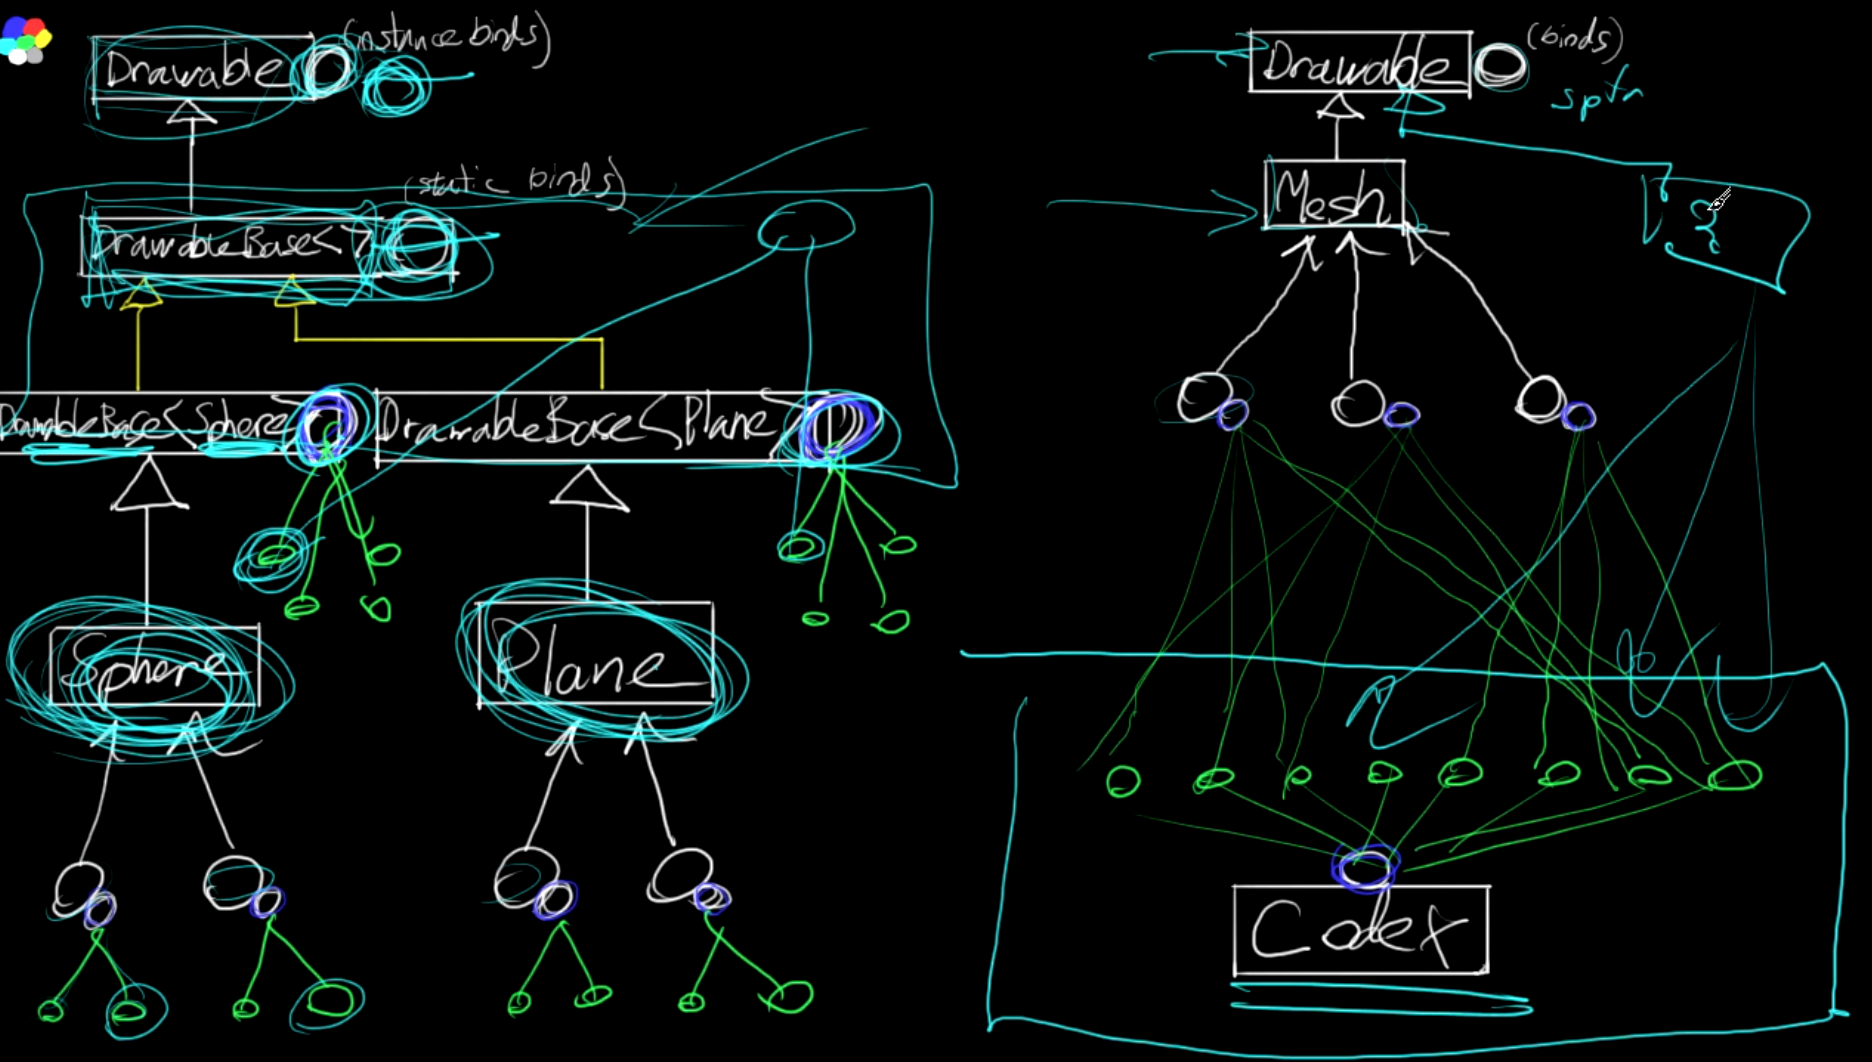 Drawable
(instance binds)
(static binds)
DrawableBase<>
DrawableBase<Sphere>
DrawableBase<Plane>
Sphere
Plane
Drawable
(binds)
sptr
Mesh
?
Codex